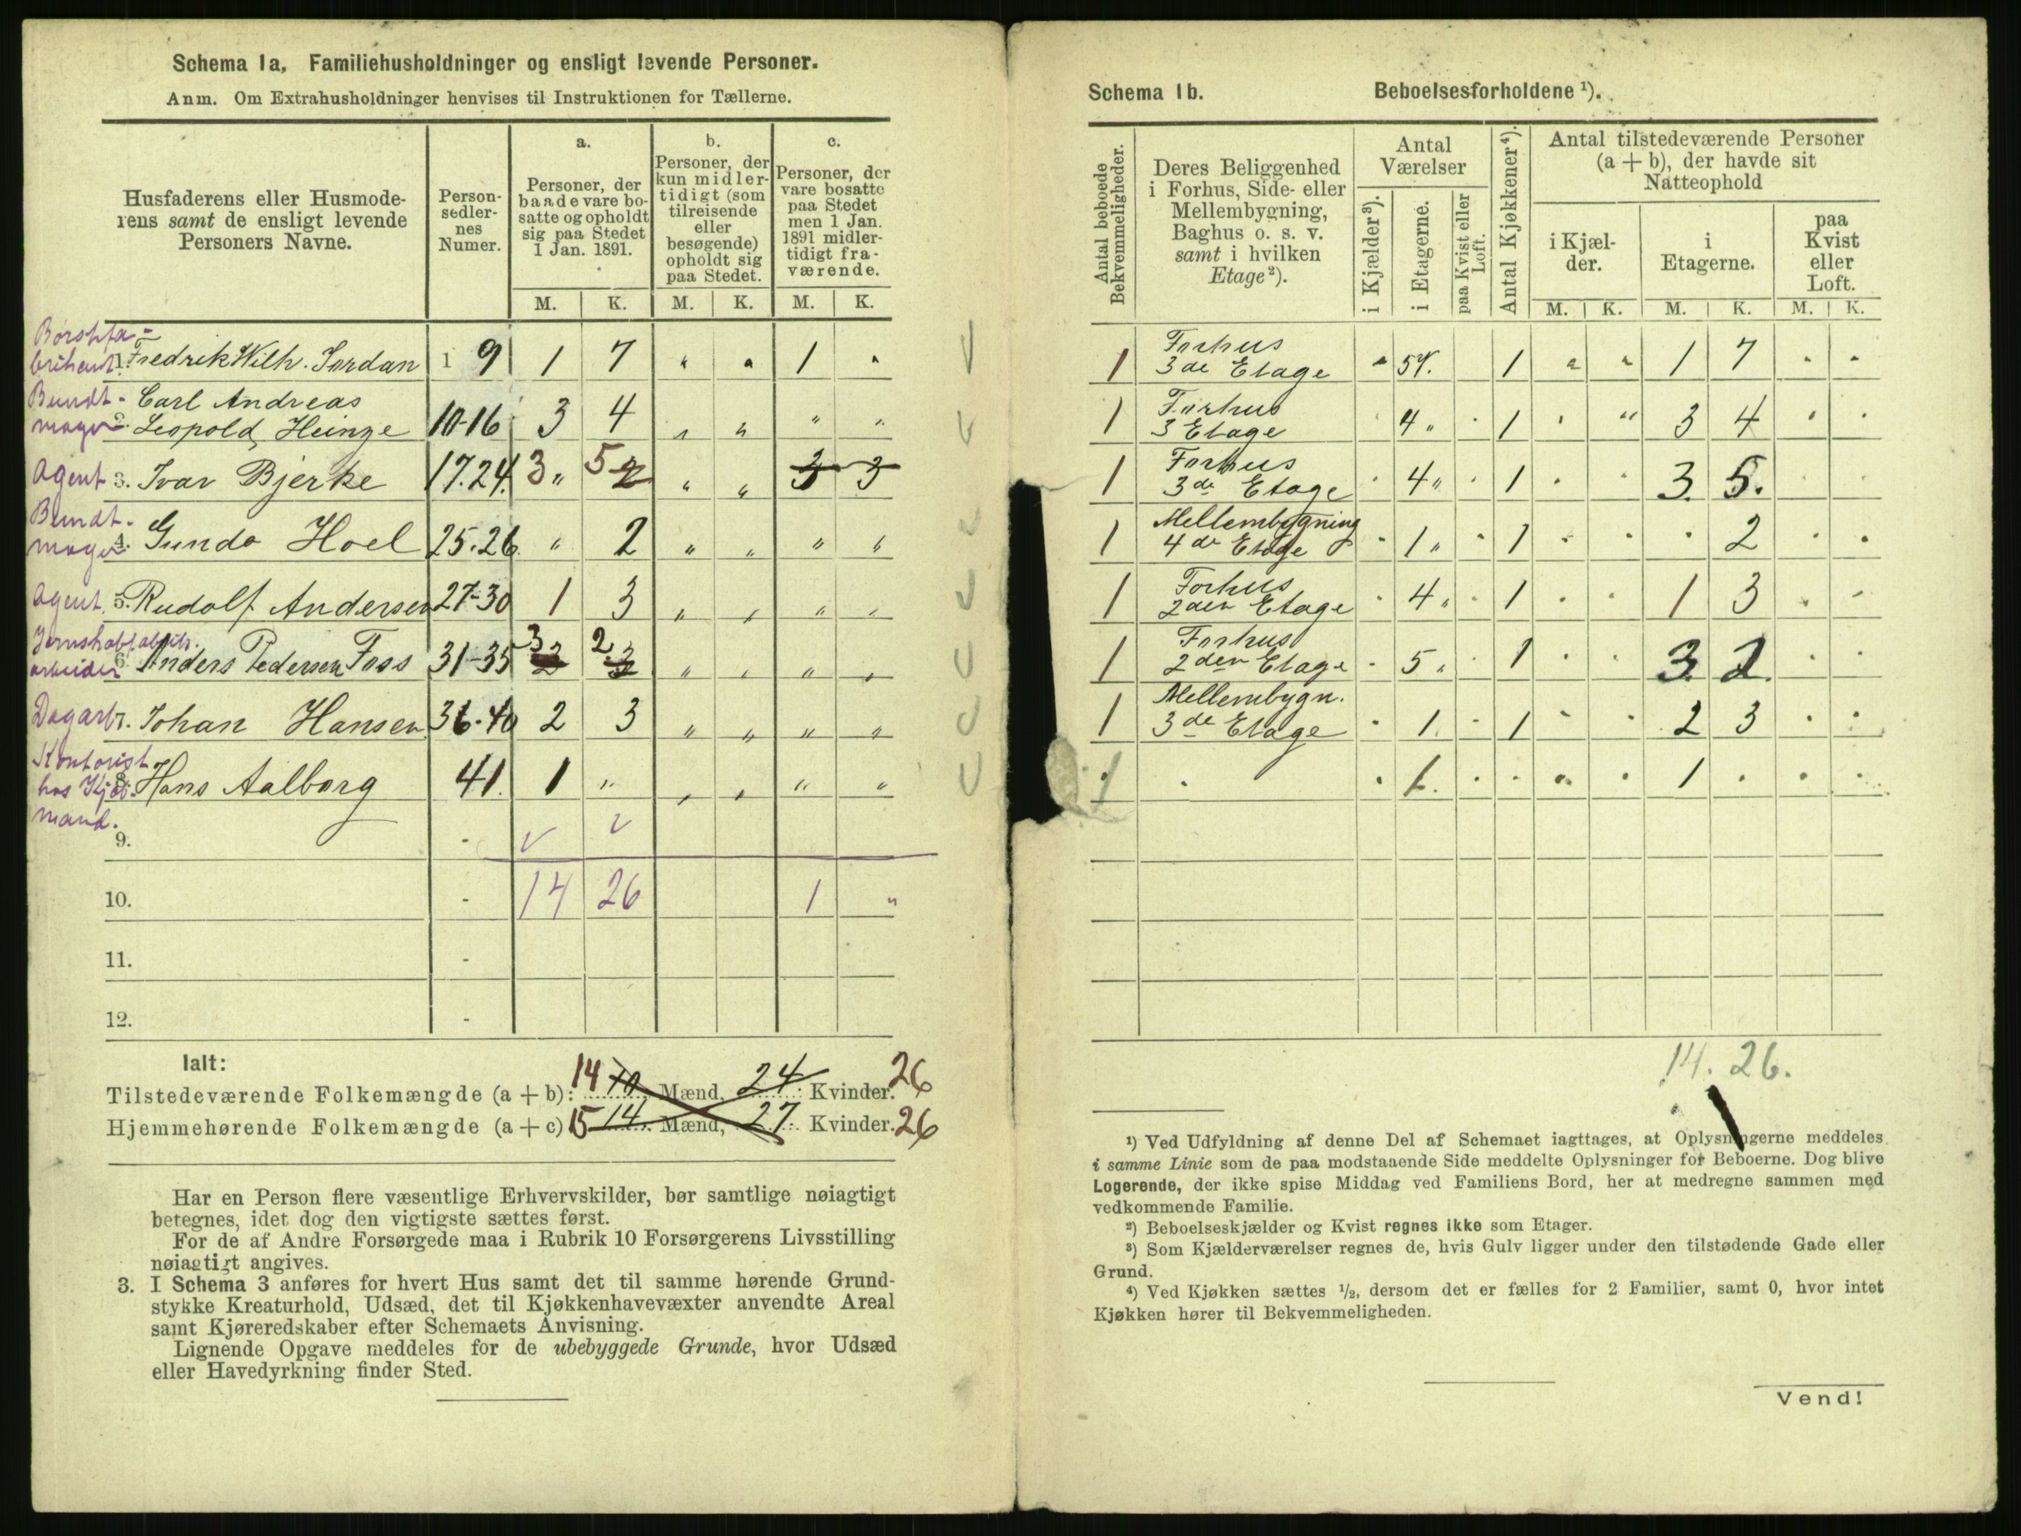 Schema 1a, Familiehusholdninger og ensligt levende Personer.
Anm. Om Extrahusholdninger henvises til Instruktionen for Tællerne.
Husfaderens eller Husmode-
rens samt de ensligt levende
Personers Navne.
Person-
sedler-
nes
Numer.
a.
Personer, der
baade vare bo-
satte og opholdt
sig paa Stedet
1 Jan. 1891.
b.
Personer, der
kun midler-
tidigt (som
tilreisende
eller
besøgende)
opholdt sig
paa Stedet.
c.
Personer, der
vare bosatte
paa Stedet
men 1 Jan.
1891 midler-
tidigt fra-
værende.
M. K. M. K. M. K.
Børstefa-
brikant 1. Fredrik Wilh. Jordan 1 9 1 7 " " 1 "
Bundt- Carl Andreas
mager 2. Leopold Heinze 10-16 3 4 " " " "
Agent 3. Ivar Bjerke 17.24. 3 " 5 2 " " 3 3
Bundt-
mager 4. Gunda Hoel 25.26 " 2 " " " "
Agent 5. Rudolf Andersen 27-30 1 3 " " " "
arbeider 6. Anders Pedersen Foss 31-35 3 2 2 3 " " " "
Dagarb. 7. Johan Hansen 36-40 2 3 " " " "
Kontorist
hos Kjøb- 8. Hans Aalborg 41. 1 " " " " "
mand.
9. -
10. - 14 26 1 "
11. -
12. -
Ialt:
Tilstedeværende Folkemængde (a + b): 14 10 Mænd, 24 Kvinder. 26
Hjemmehørende Folkemængde (a + c) 15 14 Mænd, 27 Kvinder. 26
Har en Person flere væsentlige Erhvervskilder, bør samtlige nøiagtigt
betegnes, idet dog den vigtigste sættes først.
For de af Andre Forsørgede maa i Rubrik 10 Forsørgerens Livsstilling
nøiagtigt angives.
3. I Schema 3 anføres for hvert Hus samt det til samme hørende Grund-
stykke Kreaturhold, Udsæd, det til Kjøkkenhavevæxter anvendte Areal
samt Kjøreredskaber efter Schemaets Anvisning.
Lignende Opgave meddeles for de ubebyggede Grunde, hvor Udsæd
eller Havedyrkning finder Sted.
Schema 1b. Beboelsesforholdene ¹).
Antal beboede
Bekvemmeligheder.
Deres Beliggenhed
i Forhus, Side- eller
Mellembygning,
Baghus o. s. v.
samt i hvilken
Etage ²).
Antal
Værelser
i Kjælder ³).
i Etagerne.
paa Kvist eller
Loft.
Antal Kjøkkener ⁴).
Antal tilstedeværende Personer
(a + b), der havde sit
Natteophold
i Kjæl-
der.
i
Etagerne.
paa
Kvist
eller
Loft.
M. K. M. K. M. K.
Forhus
1 3de Etage " 5 1 " " 1 7 " "
Forhus
1 3 Etage 4 " 1 " 3 4
Forhus
1 3de Etage 4 " 1 3. 5.
Mellembygning
1 4de Etage 1 " 1 2
Forhus
1 2den Etage 4 " 1 1 3
Forhus
1 2den Etage 5 " 1 3. 2.
Mellembygn.
1 3de Etage 1 1 2 3
1 1. 1
14. 26.
¹) Ved Udfyldning af denne Del af Schemaet iagttages, at Oplysningerne meddeles
i samme Linie som de paa modstaaende Side meddelte Oplysninger for Beboerne. Dog blive
Logerende, der ikke spise Middag ved Familiens Bord, her at medregne sammen med
vedkommende Familie.
²) Beboelseskjælder og Kvist regnes ikke som Etager.
³) Som Kjælderværelser regnes de, hvis Gulv ligger under den tilstødende Gade eller
Grund.
⁴) Ved Kjøkken sættes ½, dersom det er fælles for 2 Familier, samt 0, hvor intet
Kjøkken hører til Bekvemmeligheden.
Vend!